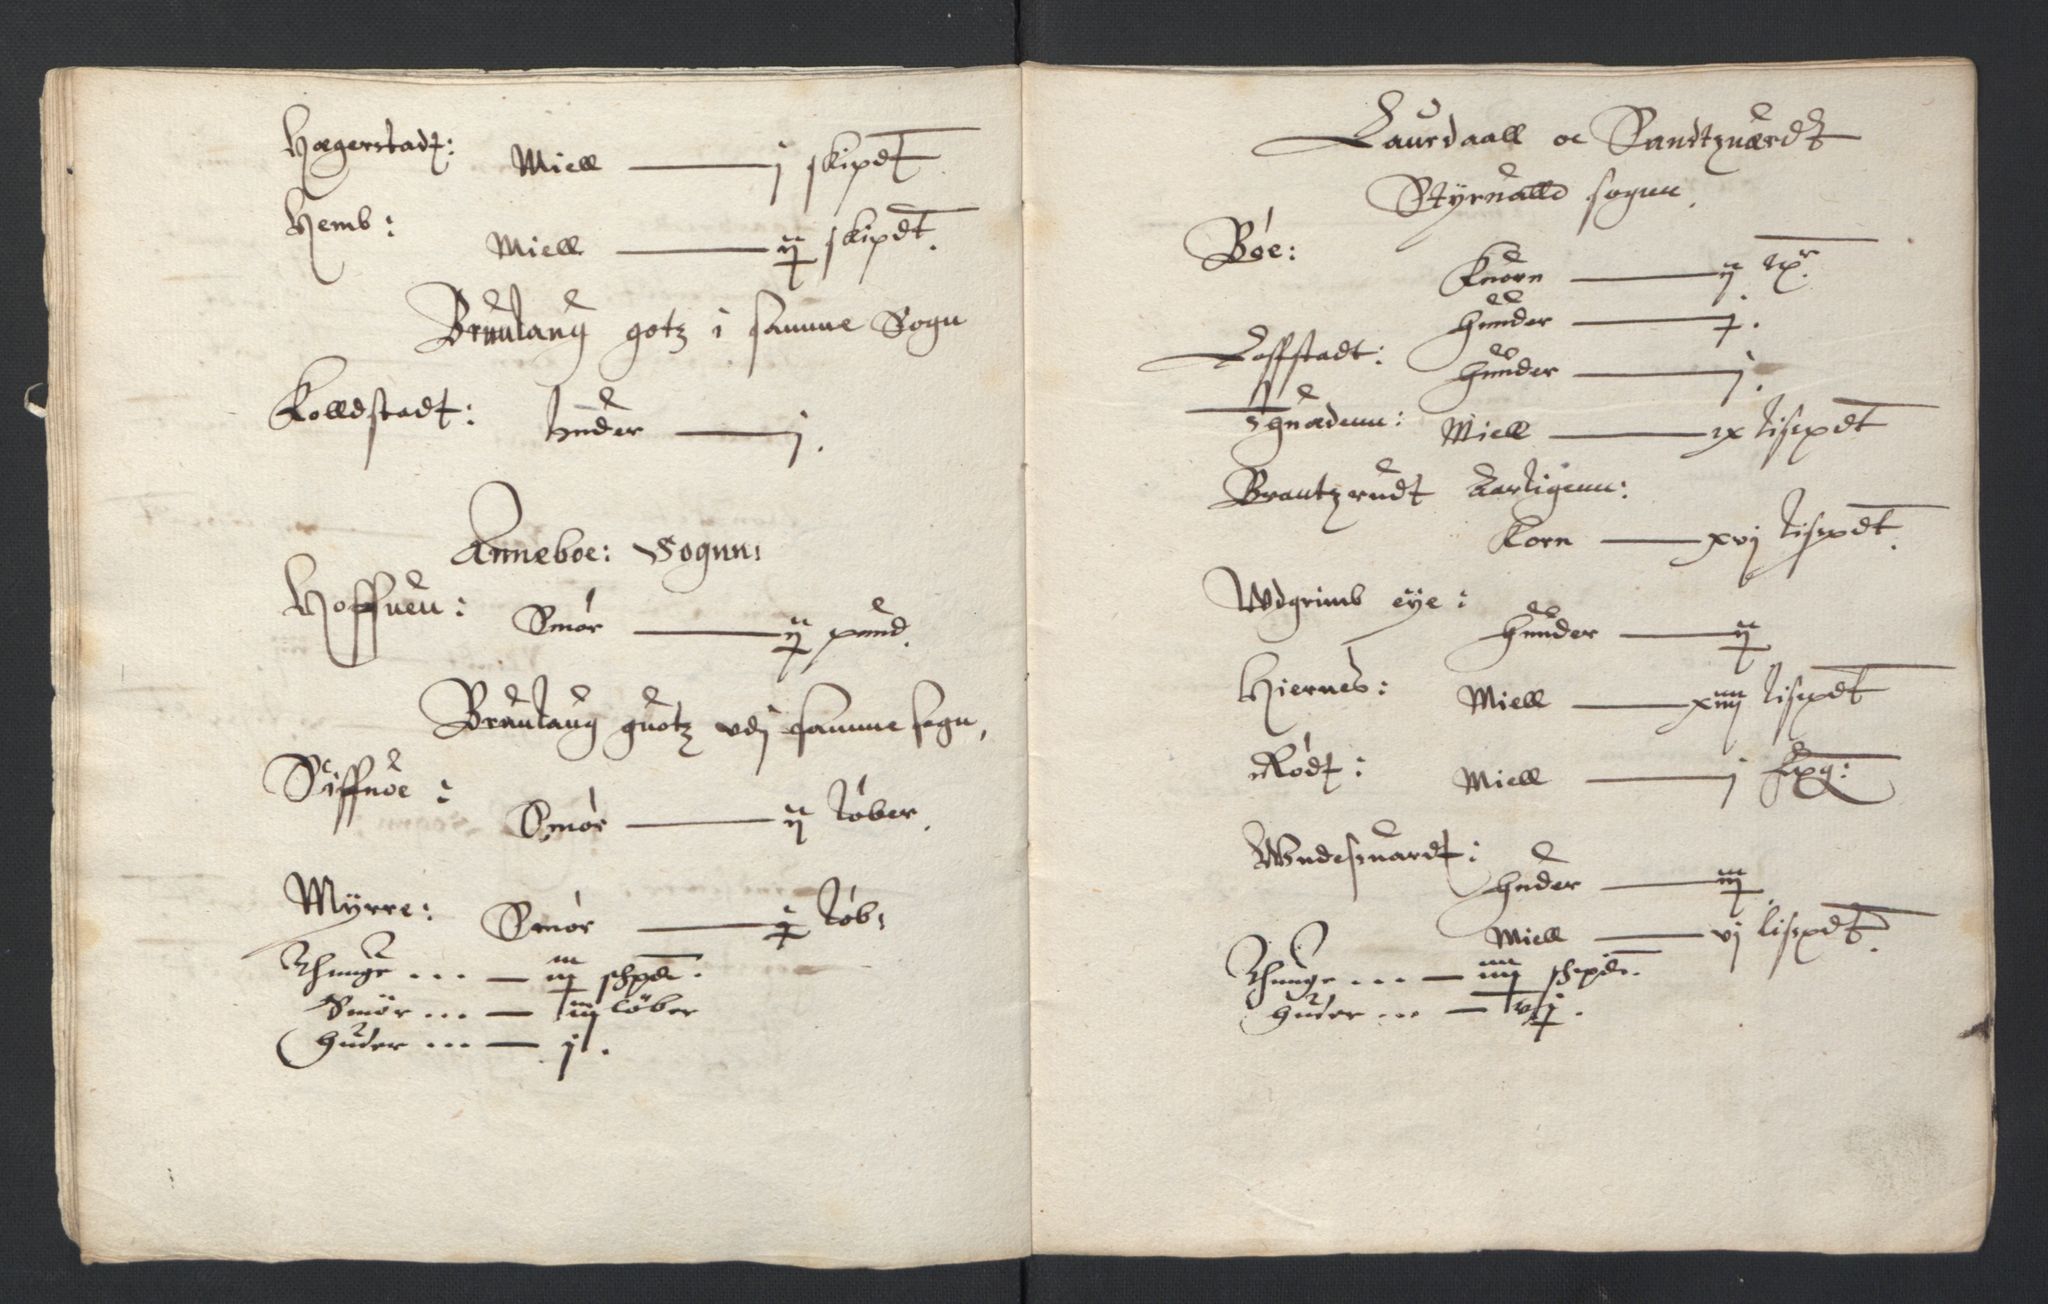 Hægerstadt:
Miell — j skipdt
Hemb:
Miell — ij skipdt.
Braulaug gotz i samme Sogn
Kolldstadt:
huder — j.
Anneboe: Sognn:
Hoffueu:
Smør — ij pund.
Braulaug guotz vdj samme sogn,
Smør — ij løber.
Myrre:
Smør — j løb:
Thunge ... — iij schpd.
Smör ... — iij löber
huder ... — j.
Laurdaall oc Sandtzuærdt
Styrualld sognn.
Bøe:
Kuorn — ij
hunder — j.
Loffstadt:
hunder — j.
Miell — ix lisepdt
Brantzrudt Aarligenn:
Korn — xvj lisepdt.
Wdgrimb eye:
hunder — ij
Hiernes:
Miell — xiiij lisepdt
Rødt:
Miell — j
Wndesuardt:
huder — iij.
Miell — vj lisepdt.
Thunge ... — iiij schpd.
huder ... — vij.